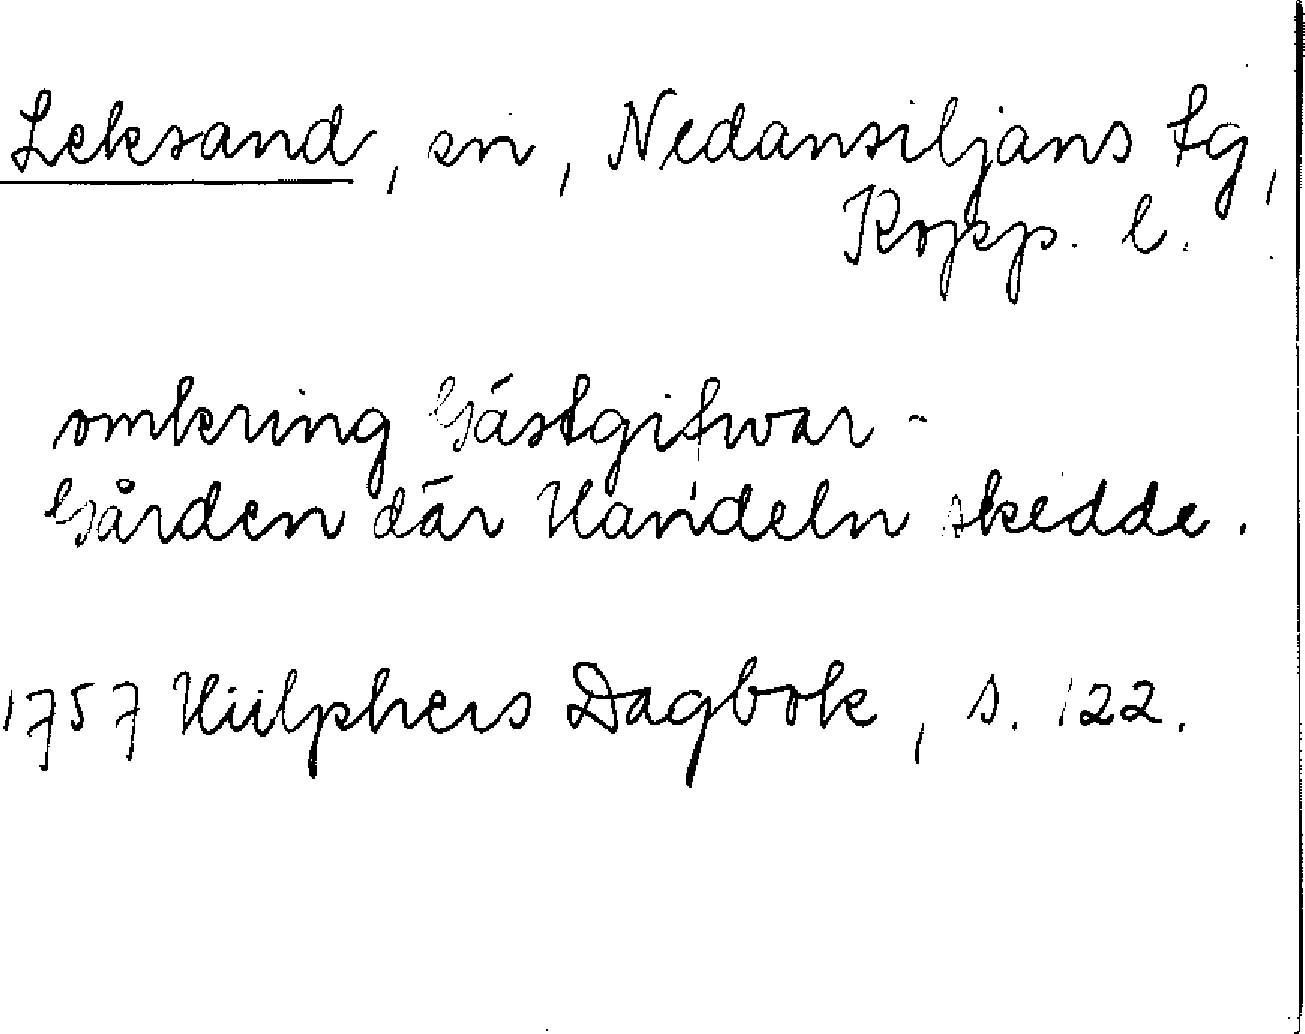 Leksand, sn, Nedansiljans tg,
Kopp. l.
omkring Gästgifwar-
Gården där Handeln skedde.
1757 Hülphers Dagbok, s. 122.